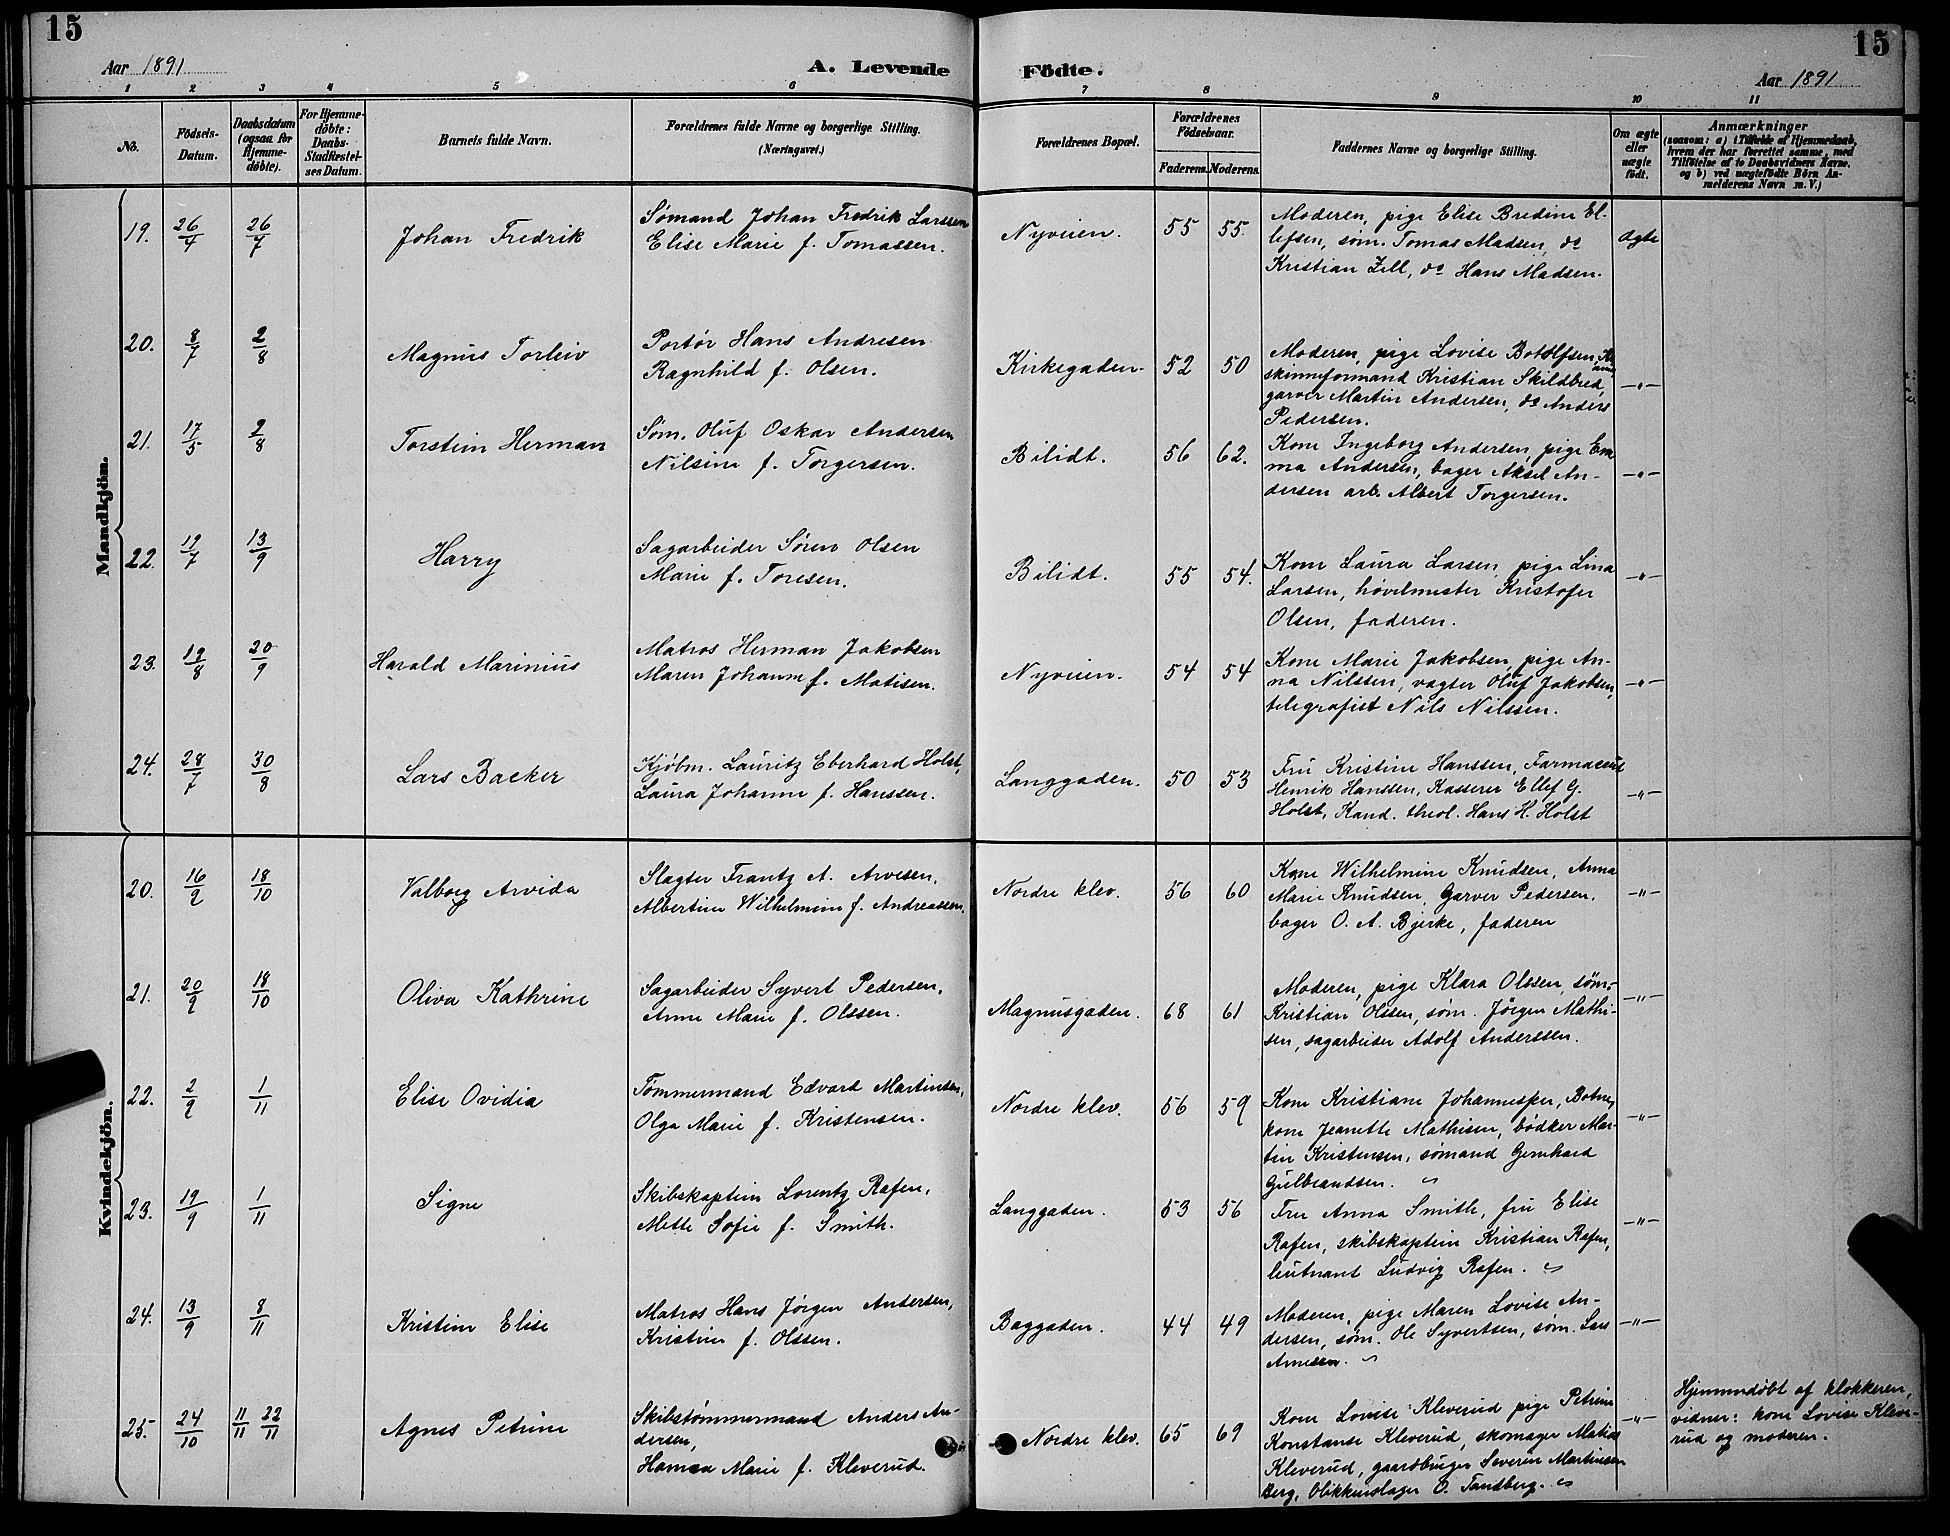 15
Aar 1891
A. Levende
Födte.
15
Aar 1891
1 2 3 4 5 6 7 8 9 10 11
No.
Födsels-
Datum.
Daabsdatum
(ogsaa for
Hjemme-
døbte).
For Hjemme-
døbte:
Daabs-
Stadfæstel-
ses Datum.
Barnets fulde Navn.
Forældrenes fulde Navne og borgerlige Stilling.
(Næringsvei.)
Forældrenes Bopæl.
Forældrenes
Födselsaar.
Faderens. Moderens.
Faddernes Navne og borgerlige Stilling.
Om ægte
eller
uægte
født.
Anmærkninger
(saasom: a) i Tilfælde af Hjemmedaab,
hvem der har forrettet samme, med
Tilföielse af to Daabsvidners Navne,
og b) ved uægtefödte Börn An-
melderens Navn m. V.)
Mandkjön.
19. 26/4 26/7 Johan Fredrik
Sømand Johan Fredrik Larssen
Elise Marie f. Tomassen.
Nyveien. 55 55.
Moderen, pige Elise Bredine El-
lefsen, søm. Tomas Madsen, do
Kristian Zill, do Hans Madsen.
ægte
20. 8/7 2/8 Magnus Torleiv
Portør Hans Andresen
Ragnhild f. Olsen.
Kirkegaden. 52 50
Moderen, pige Lovise Botolfsen,
skinneformand Kristian Skildbred,
garver Martin Andersen, do Anders
Pedersen.
—"—
21. 17/5 2/8 Torstein Herman
Søm. Oluf Oskar Andersen
Nilsine f. Torgersen.
Bilidt. 56 62.
Kone Ingeborg Andersen, pige Em
ma Andersen, bager Aksel An-
dersen arb. Albert Torgersen.
—"—
22. 19/7 13/9 Harry
Sagarbeider Søren Olsen
Marie f. Toresen.
Bilidt. 55 54.
Kone Laura Larsen, pige Lina
Larsen, høvelmester Kristofer
Olsen, faderen.
—"—
23. 19/8 20/9 Harald Marinius
Matros Herman Jakobsen
Maren Johanne f. Matisen.
Nyveien. 54 54
Kone Marie Jakobsen, pige An-
na Nilssen, vagter Oluf Jakobsen,
telegrafist Nils Nilssen.
—"—
24. 28/7 30/8 Lars Backer
Kjøbm. Lauritz Eberhard Holst,
Laura Johanne f. Hanssen.
Langgaden. 50 53
Fru Kristine Hanssen, Farmaceut
Henrik Hanssen, Kasserer Ellef G.
Holst, Kand. theol. Hans H. Holst
—"—
Kvindekjön.
20. 16/9 18/10 Valborg Arvida
Slagter Frantz A. Arvesen,
Albertine Wilhelmine f. Andreassen.
Nordre klev. 56 60
Kone Wilhelmine Knudsen, Anna
Marie Knudsen, Garver Pedersen,
bager O. A. Bjerke, faderen
—"—
21. 20/9 18/10 Oliva Kathrine
Sagarbeider Syvert Pedersen,
Anne Marie f. Olssen.
Magnusgaden. 68 61
Moderen, pige Klara Olssen, søm.
Kristian Olssen, søm. Jörgen Mathi-
sen, sagarbeider Adolf Anderssen.
—"—
22. 2/9 1/11 Elise Ovidia
Tømmermand Edvard Martinsen,
Olga Marie f. Kristensen.
Nordre klev. 56 59
Kone Kristiane Johannesper, Botne,
kone Jeanette Mathisen, bødker Mar-
tin Kristensen, sømand Gernhard
Gulbrandsen.
—"—
23. 19/9 1/11 Signe
Skibskaptein Lorentz Rafen,
Mette Sofie f. Smith.
Langgaden. 53 56
Fru Anna Smith, fru Elise
Rafen, skibskaptein Kristian Rafen,
leutnant Ludvig Rafen.
—"—
24. 13/9 8/11 Kristine Elise
Matros Hans Jörgen Andersen,
Kristine f. Olssen.
Baggaden. 44 49
Moderen, pige Maren Lovise An-
dersen, søm. Ole Syvertsen, søm. Lars
Arnesen.
—"—
25. 24/10 11/11 22/11 Agnes Petrine
Skibstømmermand Anders An-
dersen,
Hanna Marie f. Kleverud.
Nordre klev. 65 69
Kone Lovise Kleverud pige Petrine
Konstanse Kleverud, skomager Matias
Kleverud, gaardbruger Severin Martinsen
Berg, Blikkenslager O. Tandberg.
—"—
Hjemmedøbt af klokkeren,
vidner: kone Lovise Kleve-
rud og moderen.